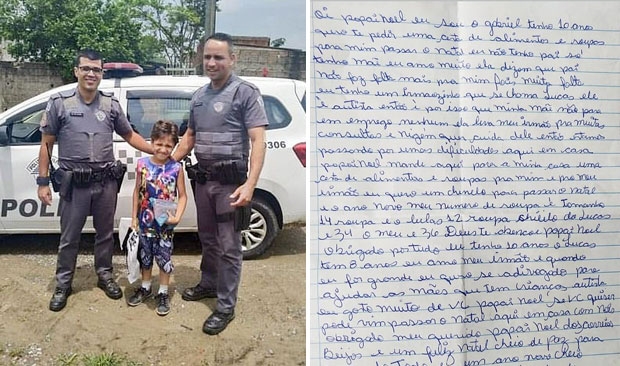 POLI
0306
Oi papai noel eu sou o gabriel tenho 10 anos
quero te pedir uma cesta de alimentos e roupas
para mim passar o natal eu não tenho pai só
tenho mãe eu amo muito ela dizem que pai
não faz falta mais pra mim faz muito falta
eu tenho um irmaozinho que se chama lucas ele
é autista então é por isso que minha mãe não para
em emprego nenhum ela leva meu irmão pra muitas
consultas e ningem quer cuida dele então estamos
passando por umas dificuldades aqui em casa
papai noel mande aqui para a minha casa uma
cesta de alimentos e roupas pra mim e pro meu
irmão eu quero um chinelo para passar o natal
e o ano novo meu numero de roupa é tamanho
14 roupa e o lucas 12 roupa chinelo do lucas
e 34 o meu e 36 Deus te abencoe papai Noel
Obrigado por tudo eu tenho 10 anos o lucas
tem 8 anos eu amo meu irmão e quando
eu for grande eu quero se advogado para
ajudar as mães que tem crianças autista
eu goto muito de vc papai noel se vc quiser
pode vim passar o natal aqui em casa com nois
obrigado meu querido papai Noel dos correios
Beijos e um feliz Natal cheio de paz para
um ano novo cheio